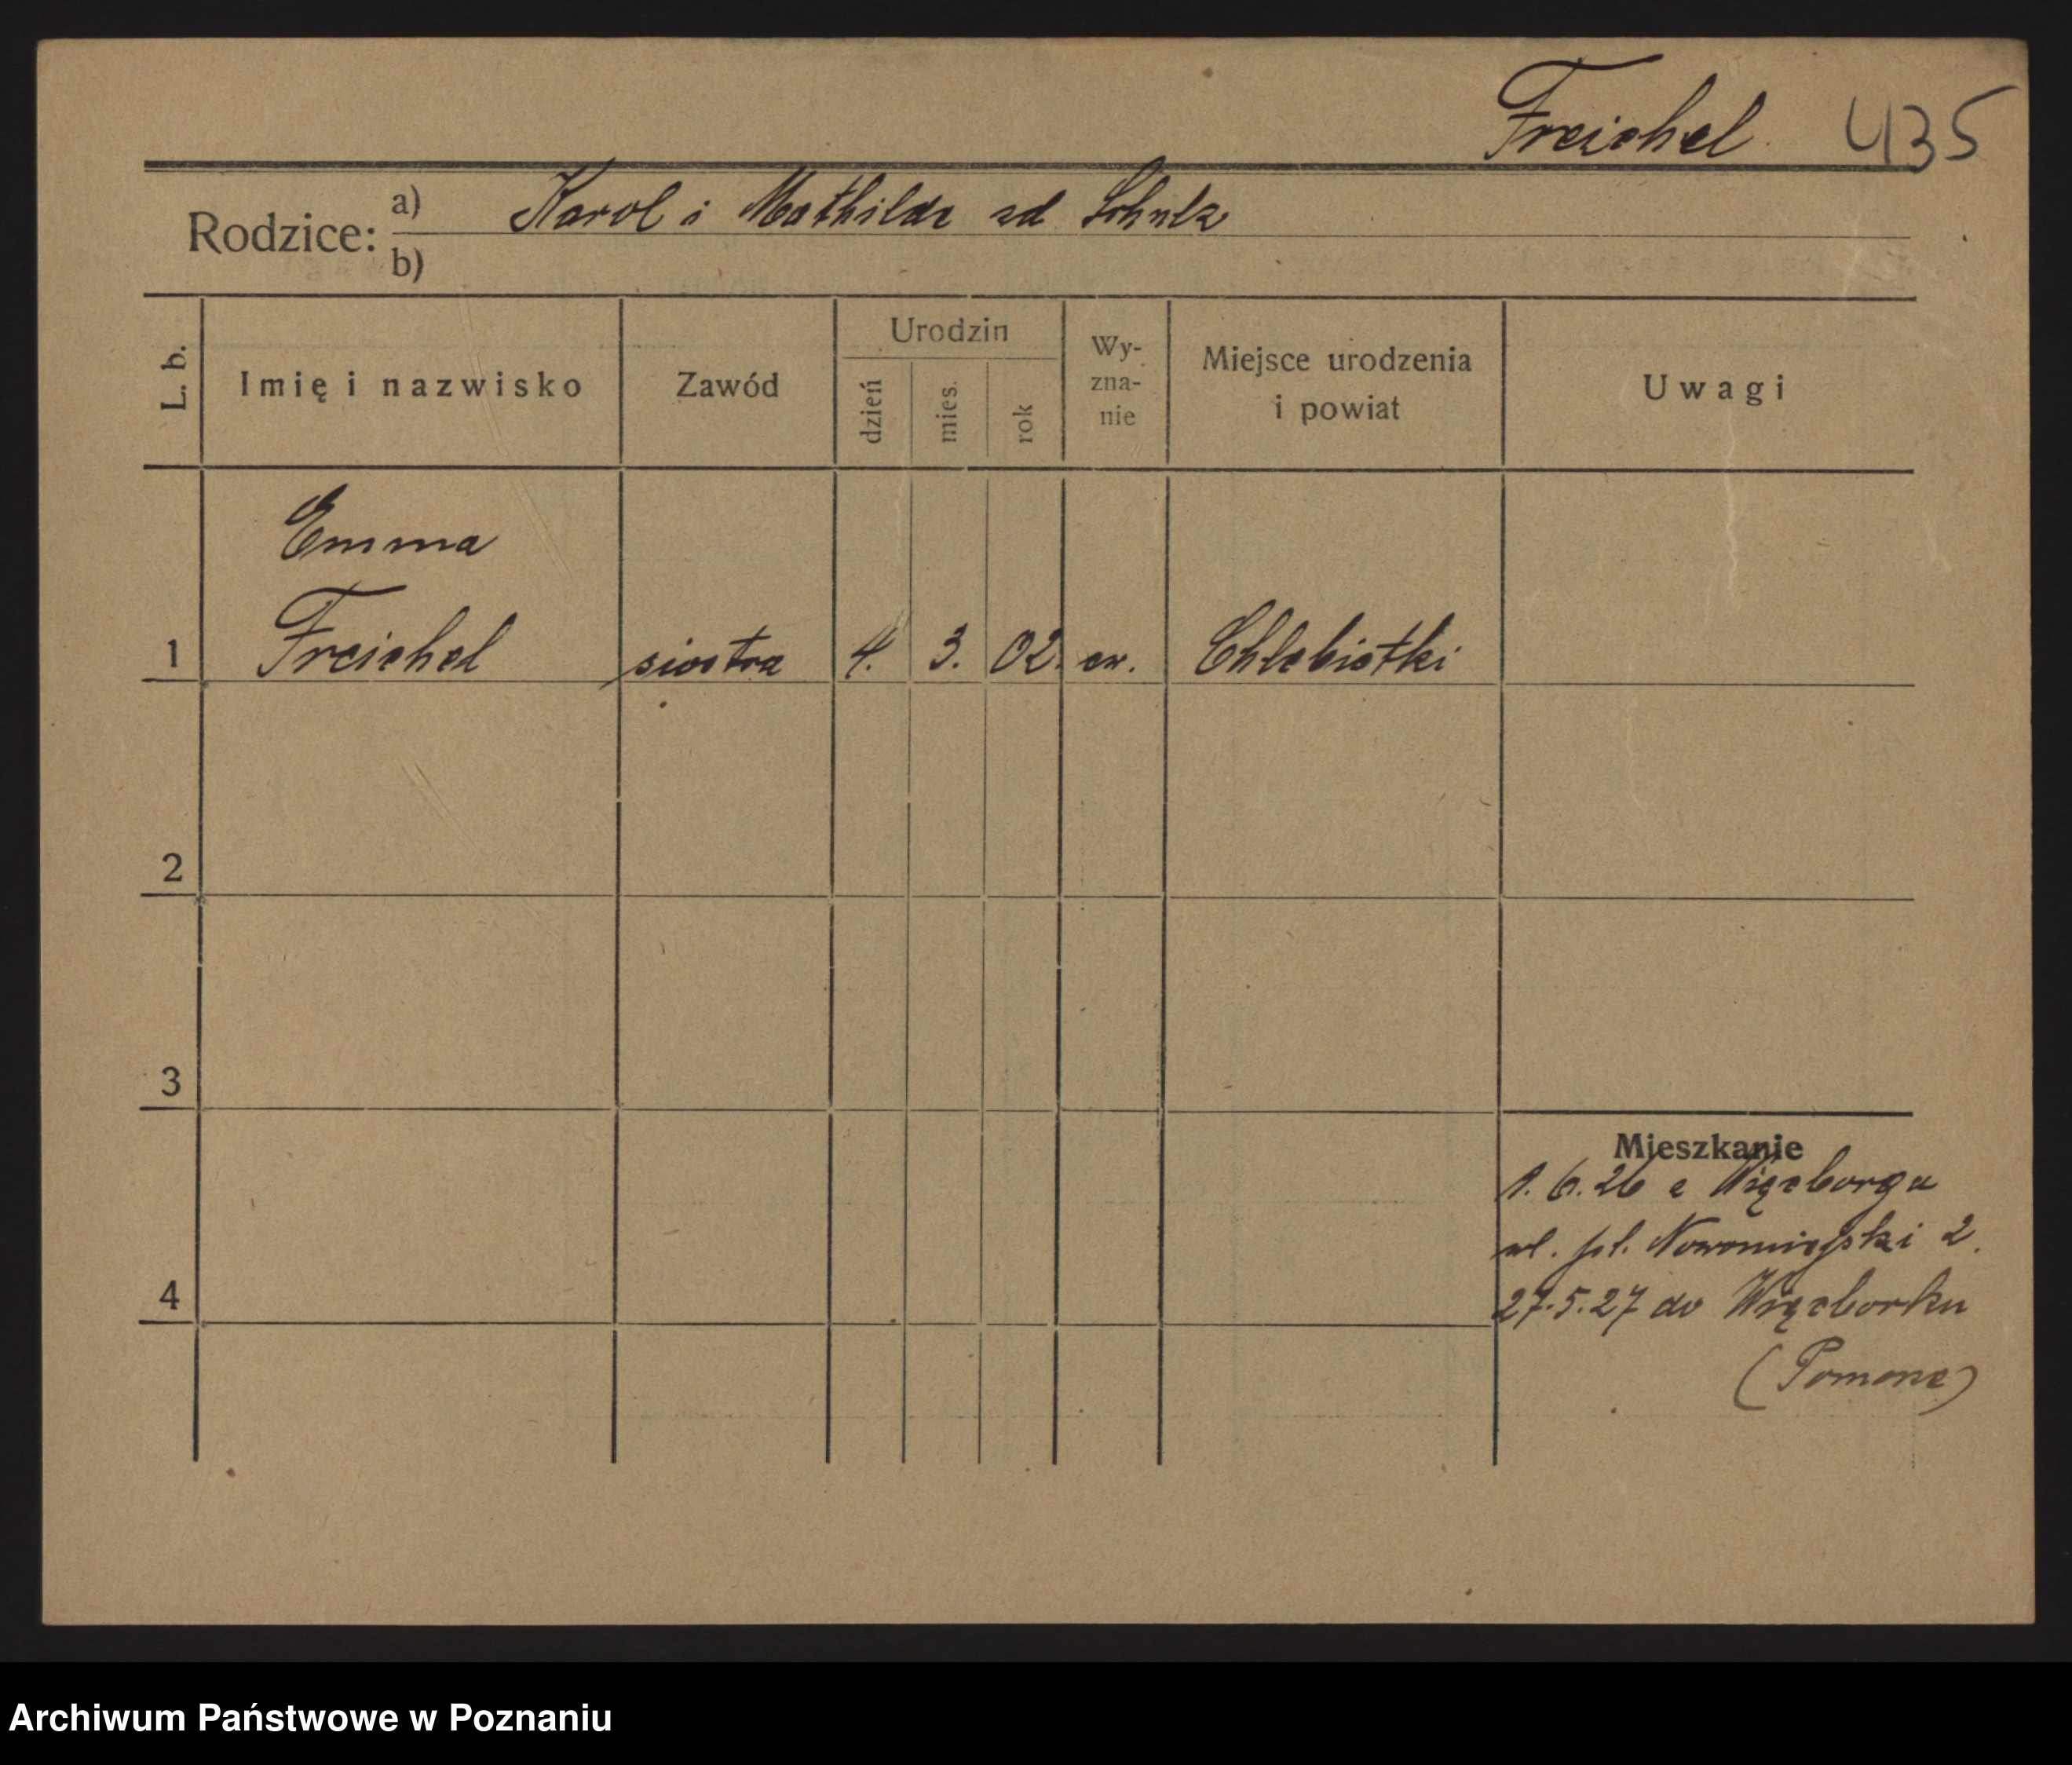 Freichel 435
Rodzice: a) Karol i Mathilde zd Schulz
b)
L. b. Imię i nazwisko Zawód Urodzin dzień mies. rok Wy-zna-nie Miejsce urodzenia i powiat Uwagi
Emma
1 Freichel siostra 4. 3. 02. ew. Chlebiotki
2
3
Mieszkanie
1. 6. 26 z Więcborga
ul. pl. Nowomiejski 2.
4 27.5.27 do Więcborku
Archiwum Państwowe w Poznaniu